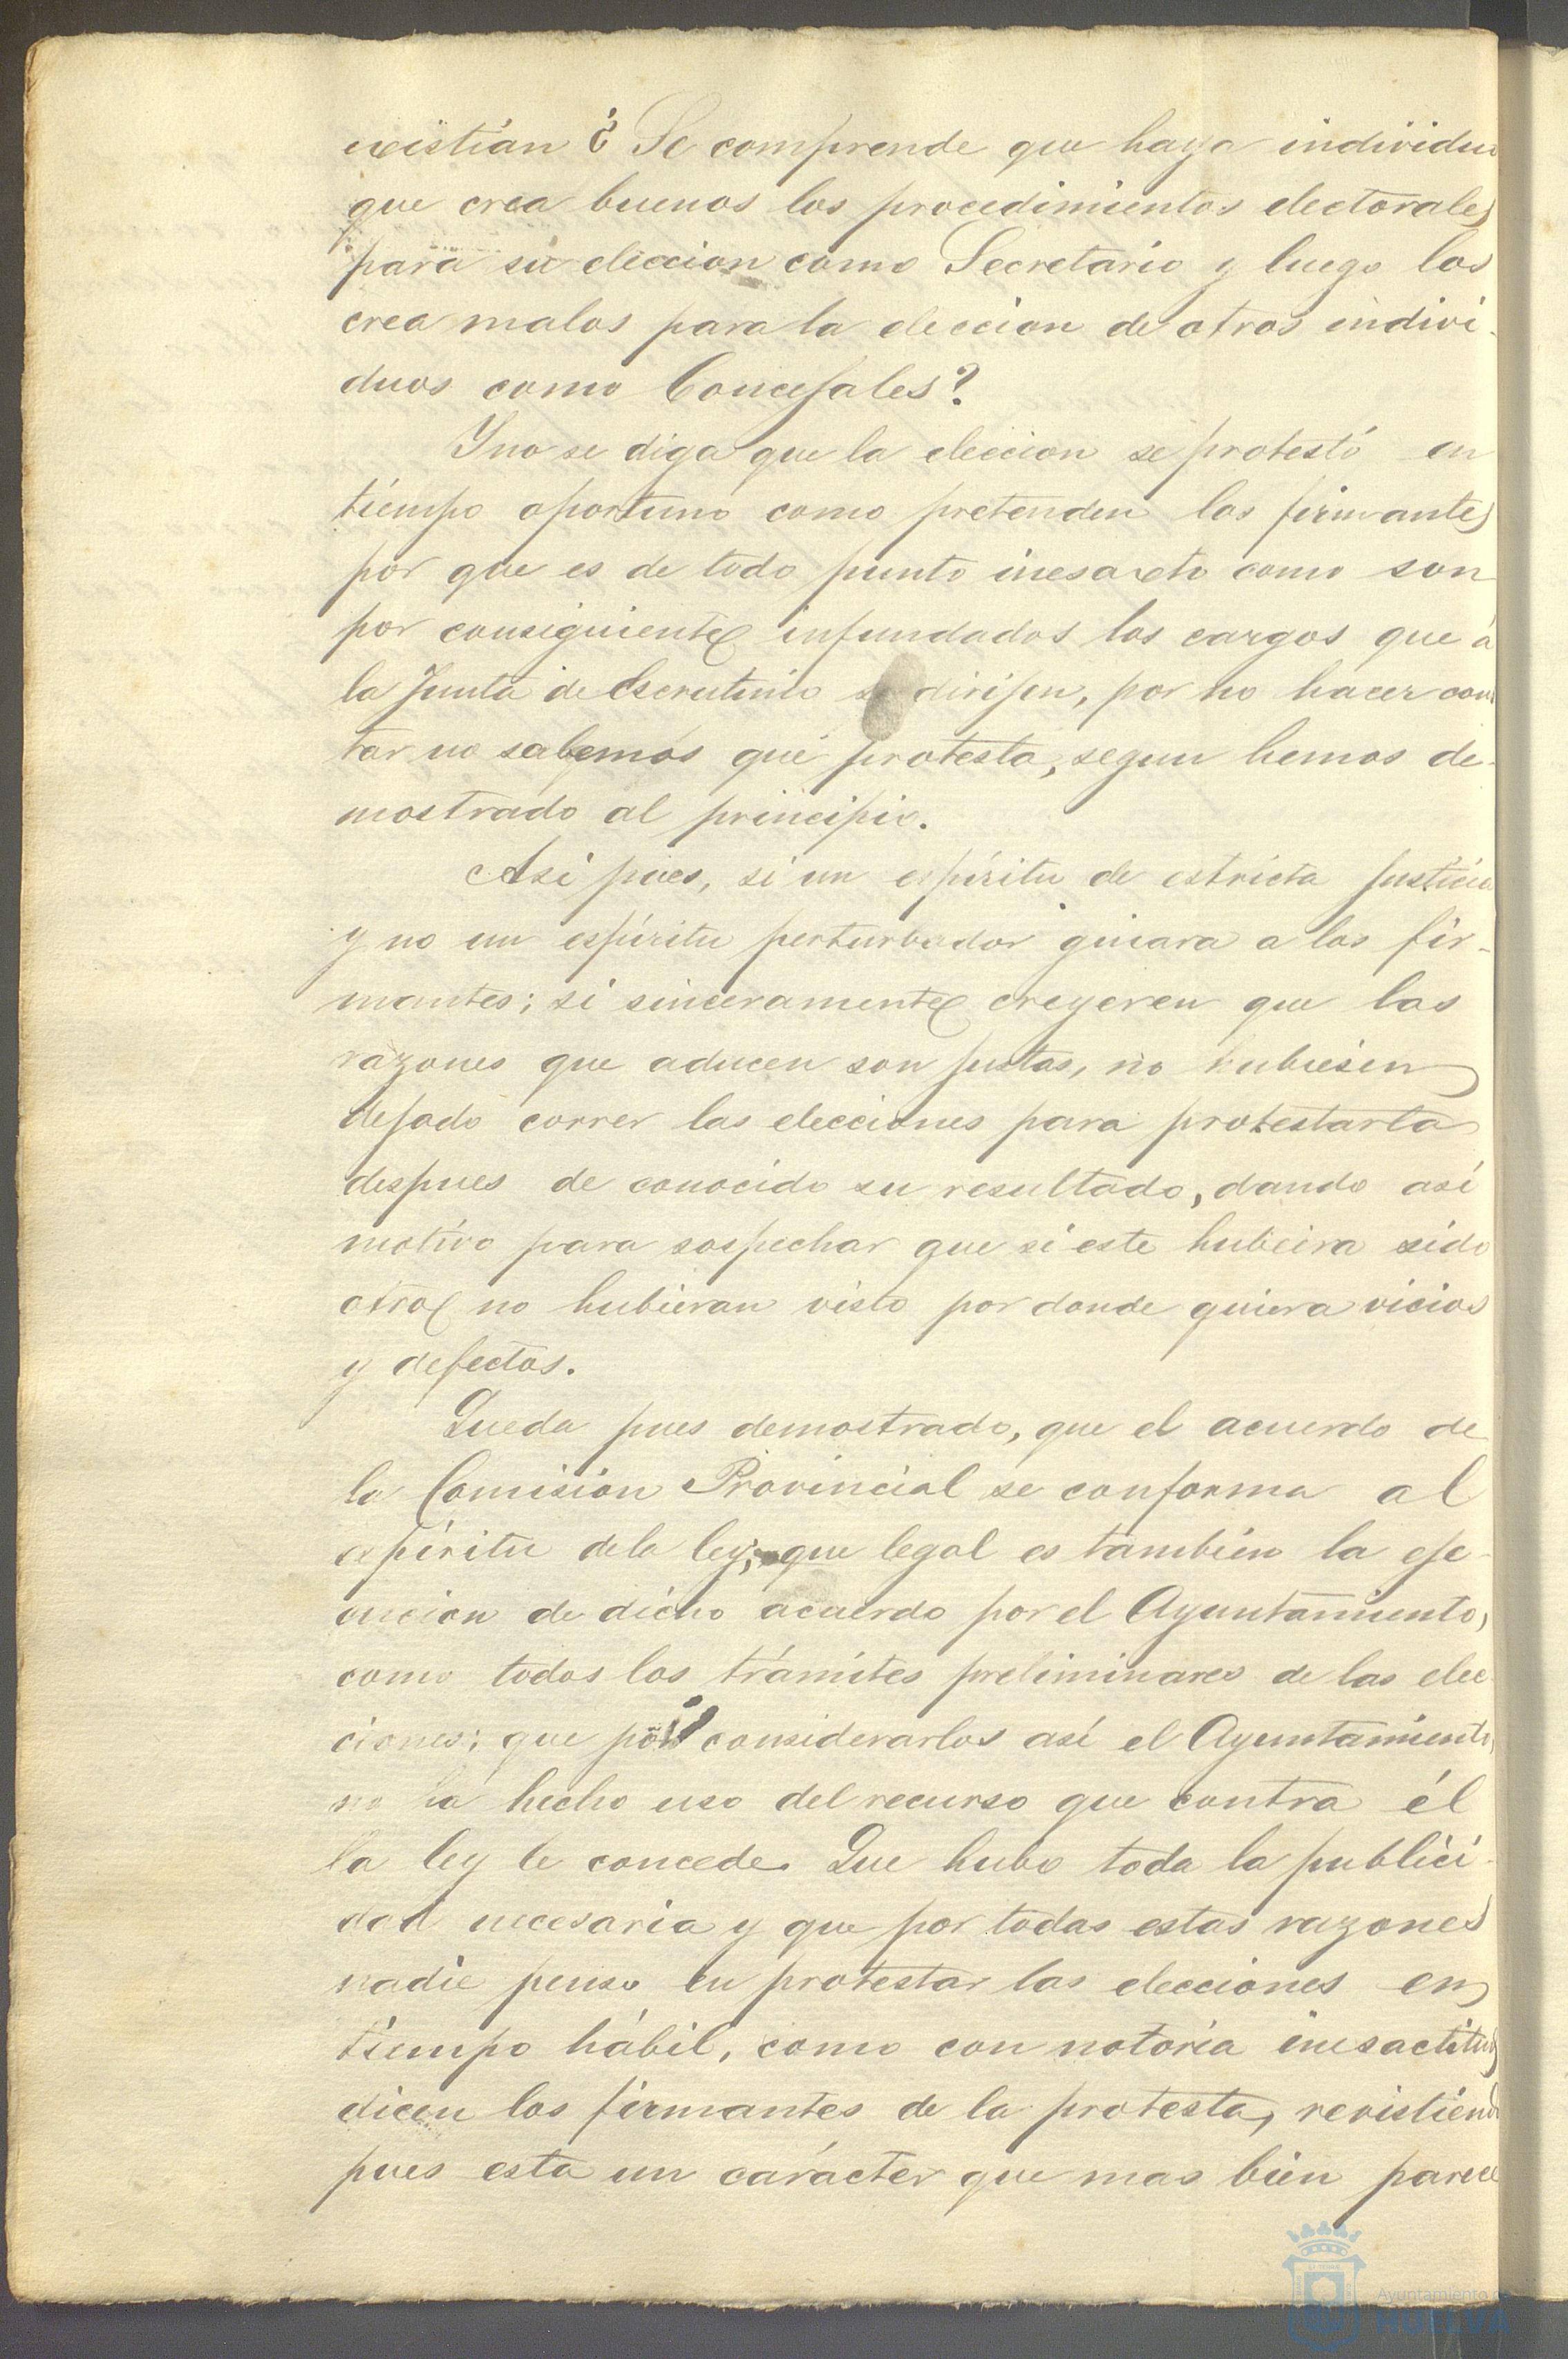 existian ¿ Se comprende que haya individuo
que crea buenos los procedimientos electorales
para su eleccion como Secretario y luego los
crea malos para la eleccion de otros indivi-
duos como Concejales?
Y no se diga que la eleccion se protestó en
tiempo oportuno como pretenden los firmantes
por que es de todo punto inesacto como son
por consiguiente infundados los cargos que á
la Junta de Escrutinio se dirijen, por no hacer cons
tar no sabemos qué protesta, segun hemos de-
mostrado al principio.
Asi pues, si un espíritu de estricta justicia
y no un espíritu perturbador guiara a los fir-
mantes; si sinceramente creyeren que las
razones que aducen son justas, no hubiesen
dejado correr las elecciones para protestarla
despues de conocido su resultado, dando así
motivo para sospechar que si este hubiera sido
otro no hubieran visto por donde quiera vicios
y defectos.
Queda pues demostrado, que el acuerdo de
la Comisión Provincial se conforma al
espíritu de la ley; que legal es también la eje-
cucion de dicho acuerdo por el Ayuntamiento,
como todos los trámites preliminares de las elec
ciones; que por considerarlos así el Ayuntamiento,
no ha hecho uso del recurso que contra él
la ley le concede. Que hubo toda la publici-
dad necesaria y que por todas estas razones
nadie penso en protestar las elecciones en
tiempo hábil, como con notoria inesactitud
dicen los firmantes de la protesta, revistiendo
pues esta un carácter que mas bien parece
Ayuntamiento de
HUELVA